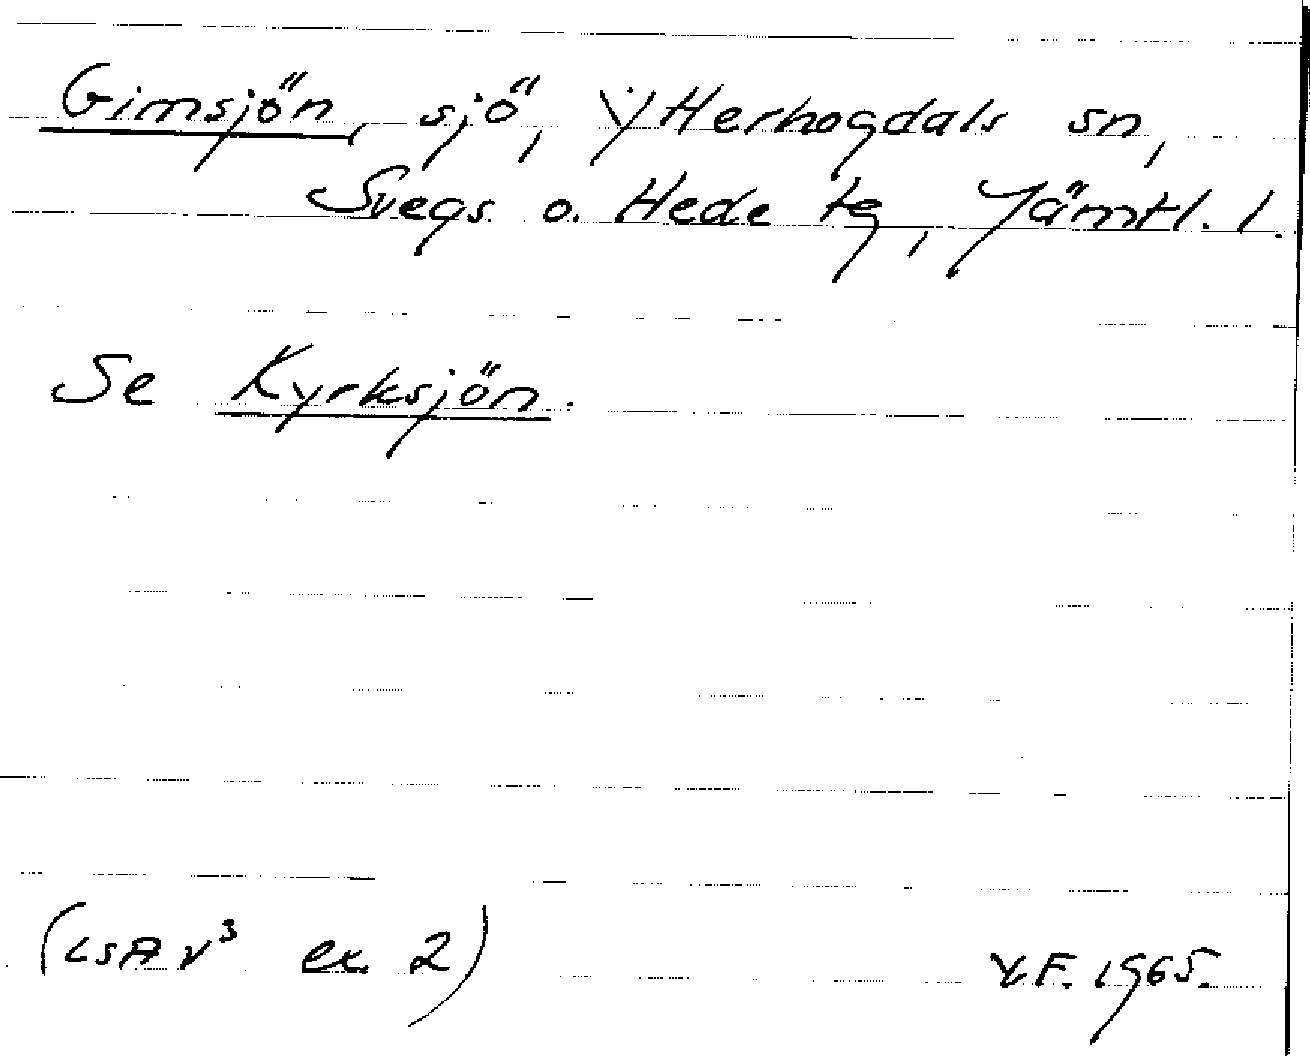 Gimsjön, sjö, Ytterhogdals sn,
Svegs o. Hede tg, Jämtl. l.
Se Kyrksjön.
(LSA V³ ex 2)
V.F. 1965.